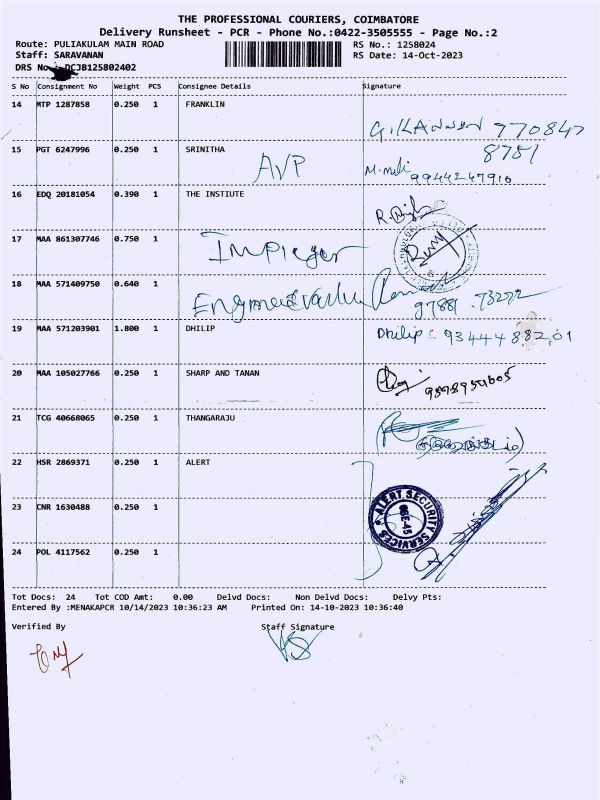 THE PROFESSIONAL COURIERS, COIMBATORE
Delivery Runsheet - PCR - Phone No.:0422-3505555 - Page No.:2
Route: PULIAKULAM MAIN ROAD RS No.: 1258024
Staff: SARAVANAN RS Date: 14-Oct-2023
DRS No.: DCJB125802402
S No Consignment No Weight PCS Consignee Details Signature
14 MTP 1287858 0.250 1 FRANKLIN
G.KANNAN 770847
8751
15 PGT 6247996 0.250 1 SRINITHA
AVP
9944247916
16 EDQ 20181054 0.390 1 THE INSTIUTE
17 MAA 861307746 0.750 1
18 MAA 571409750 0.640 1
97881 73272
19 MAA 571203901 1.800 1 DHILIP
Dhilip : 93444 88201
20 MAA 105027766 0.250 1 SHARP AND TANAN
9598959605
21 TCG 40668065 0.250 1 THANGARAJU
22 HSR 2869371 0.250 1 ALERT
ALERT SECURITY SERVICES
23 CNR 1630488 0.250 1
24 POL 4117562 0.250 1
Tot Docs: 24 Tot COD Amt: 0.00 Delvd Docs: Non Delvd Docs: Delvy Pts:
Entered By :MENAKAPCR 10/14/2023 10:36:23 AM Printed On: 14-10-2023 10:36:40
Verified By Staff Signature